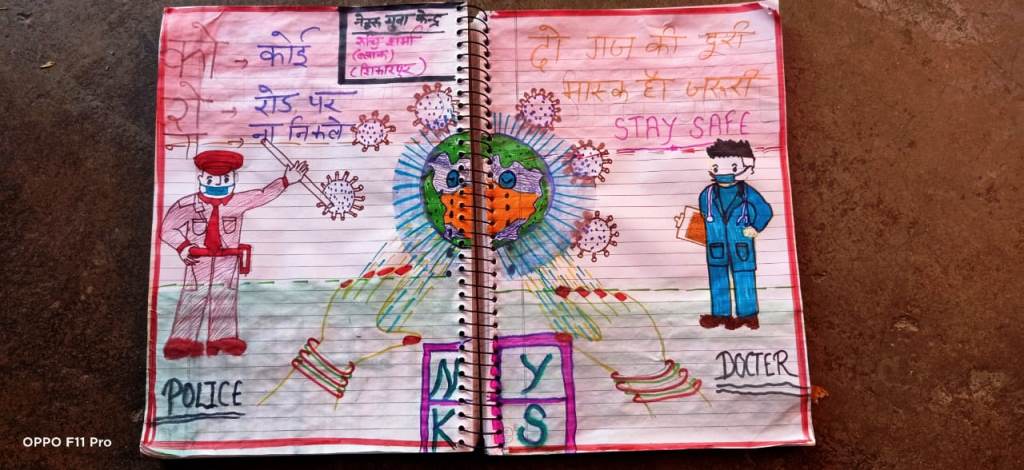 को → कोई
रो → रोड पर
ना → ना निकले
नेहरू युवा केन्द्र
शर्मा
(ब्लाक)
(शिकारपुर)
दो गज की दूरी
मास्क है जरूरी
STAY SAFE
POLICE
DOCTER
N Y
K S
OPPO F11 Pro